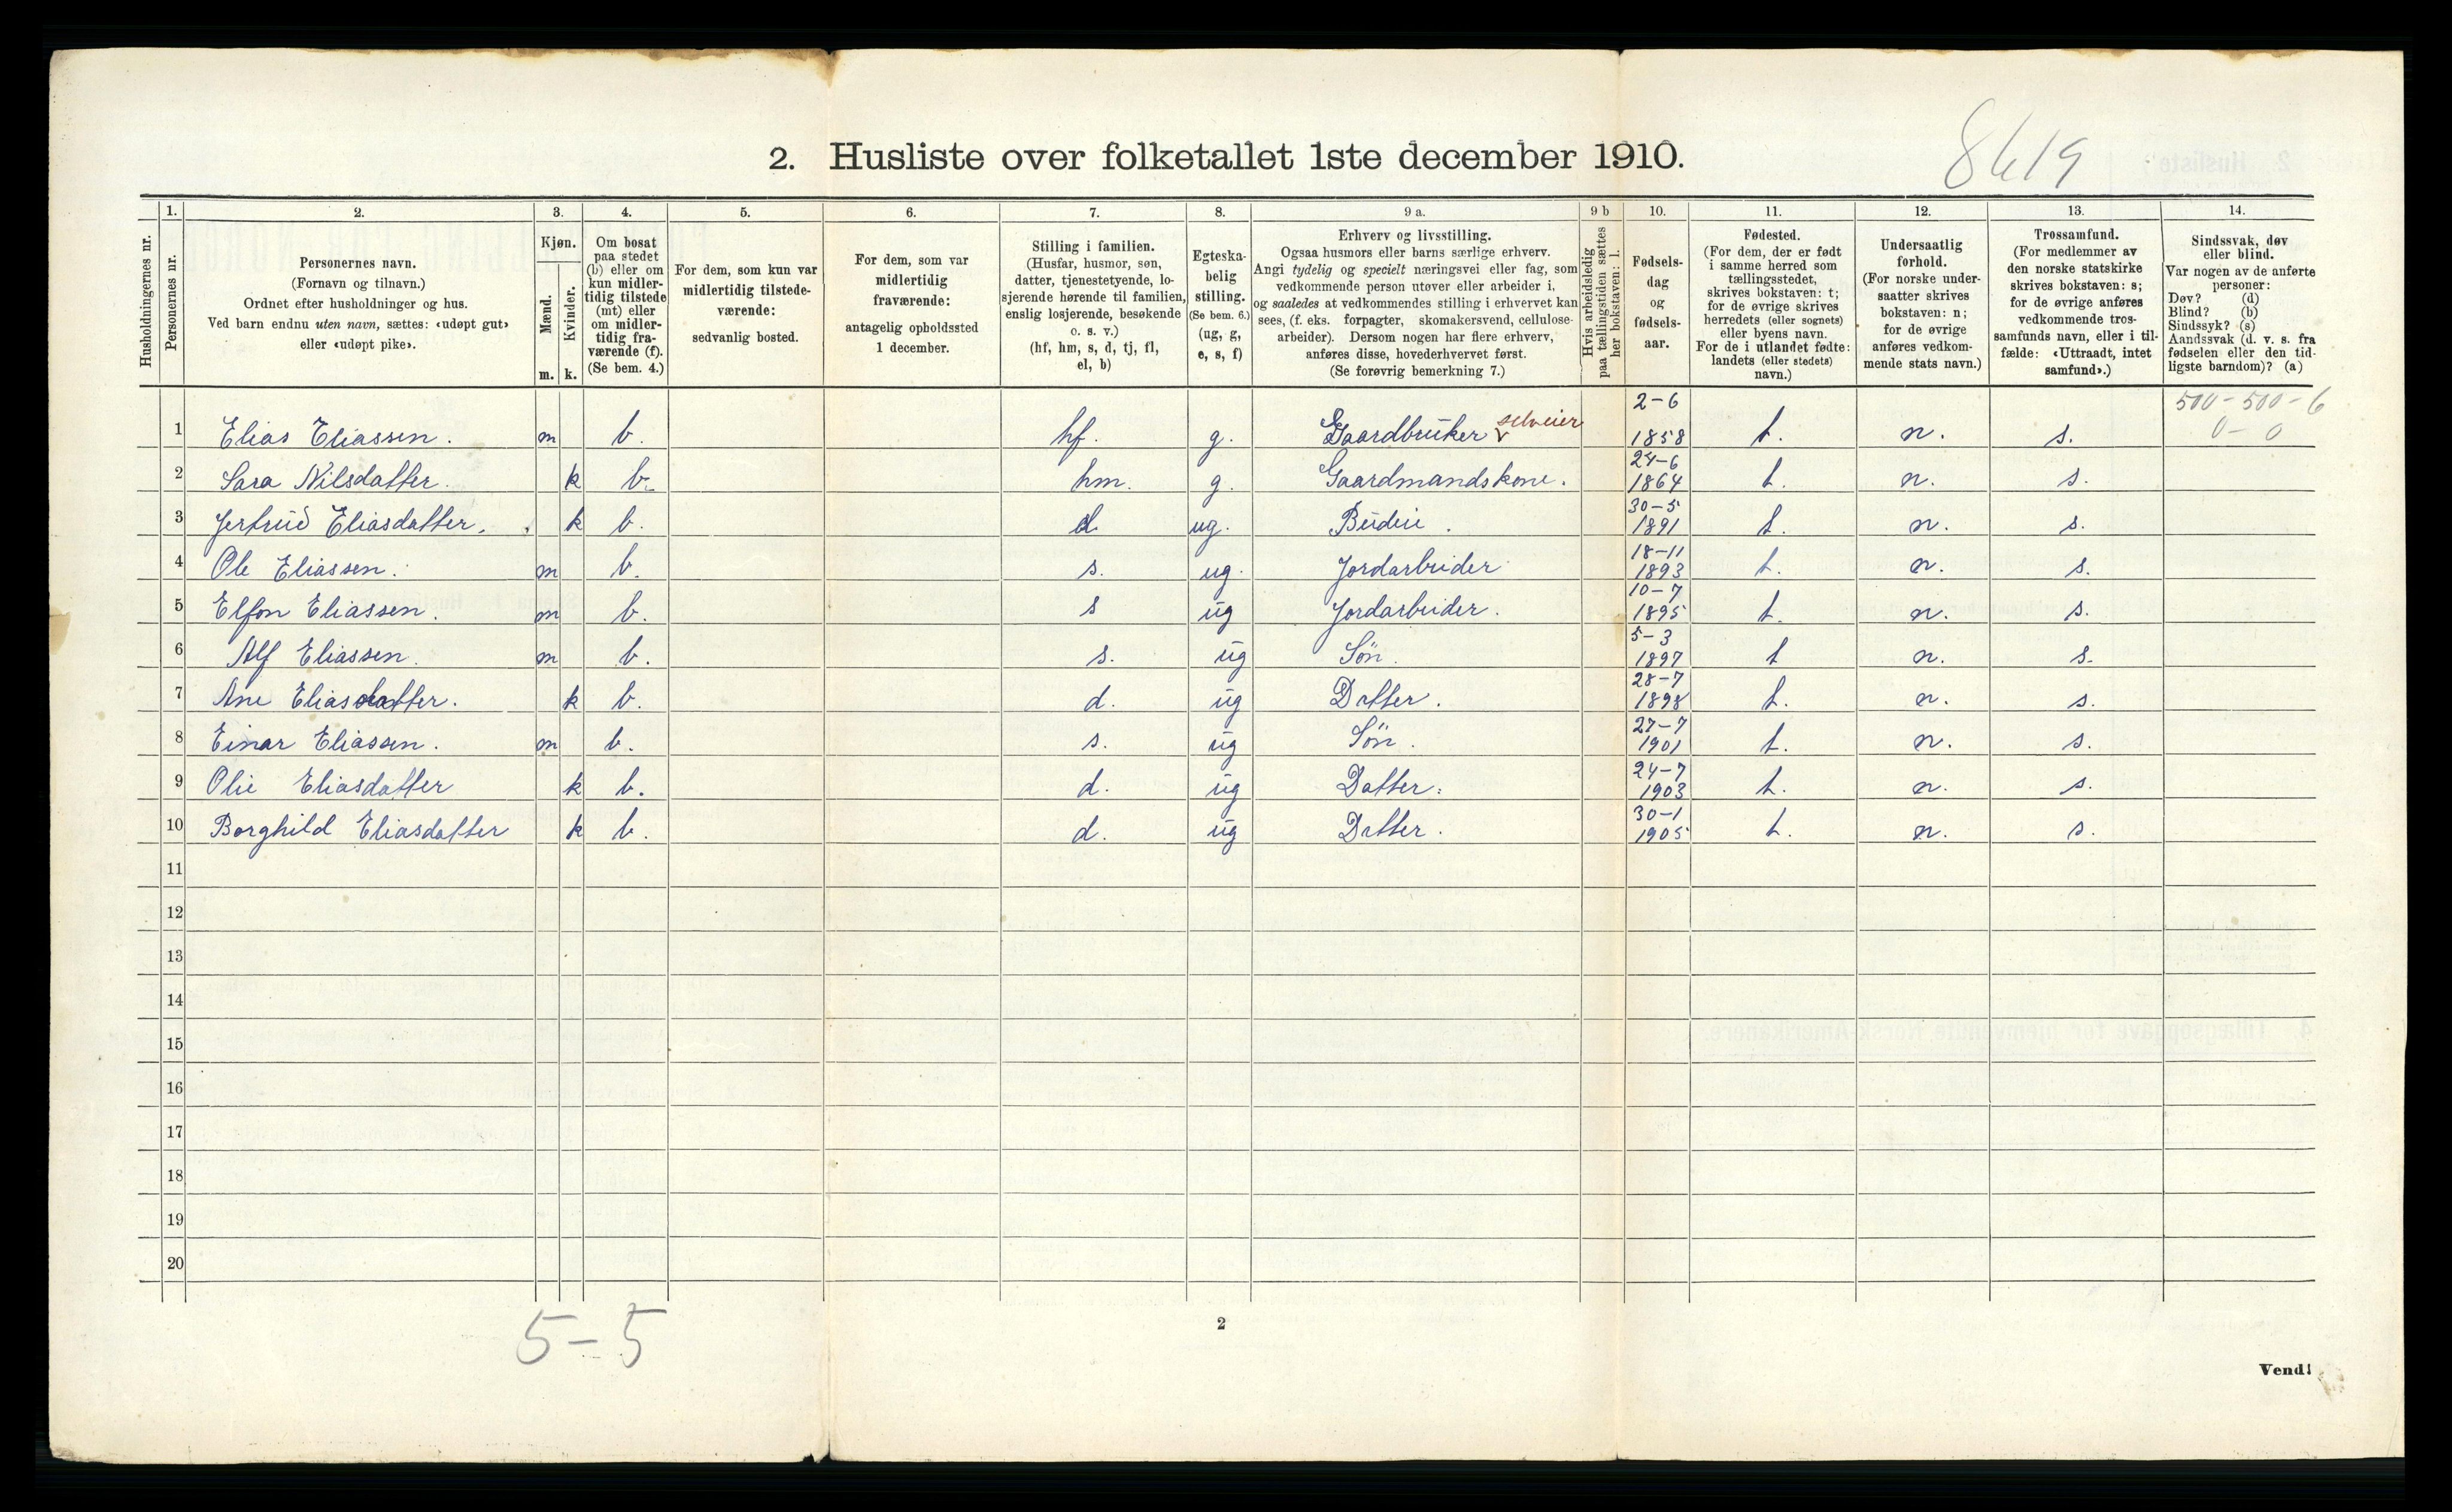 8619
2. Husliste over folketallet 1ste december 1910.
Husholdningernes nr.
1.
Personernes nr.
2.
Personernes navn.
(Fornavn og tilnavn.)
Ordnet efter husholdninger og hus.
Ved barn endnu uten navn, sættes: «udøpt gut»
eller «udøpt pike».
3.
Kjøn.
Mænd.
Kvinder.
m. k.
4.
Om bosat
paa stedet
(b) eller om
kun midler-
tidig tilstede
(mt) eller
om midler-
tidig fra-
værende (f).
(Se bem. 4.)
5.
For dem, som kun var
midlertidig tilstede-
værende:
sedvanlig bosted.
6.
For dem, som var
midlertidig
fraværende:
antagelig opholdssted
1 december.
7.
Stilling i familien.
(Husfar, husmor, søn,
datter, tjenestetyende, lo-
sjerende hørende til familien,
enslig losjerende, besøkende
o. s. v.)
(hf, hm, s, d, tj, fl,
el, b)
8.
Egteska-
belig
stilling.
(Se bem. 6.)
(ug, g,
e, s, f)
9 a.
Erhverv og livsstilling.
Ogsaa husmors eller barns særlige erhverv.
Angi tydelig og specielt næringsvei eller fag, som
vedkommende person utøver eller arbeider i,
og saaledes at vedkommendes stilling i erhvervet kan
sees, (f. eks. forpagter, skomakersvend, cellulose-
arbeider). Dersom nogen har flere erhverv,
anføres disse, hovederhvervet først.
(Se forøvrig bemerkning 7.)
9 b
Hvis arbeidsledig
paa tællingstiden sættes
her bokstaven: l.
10.
Fødsels-
dag
og
fødsels-
aar.
11.
Fødested.
(For dem, der er født
i samme herred som
tællingsstedet,
skrives bokstaven: t;
for de øvrige skrives
herredets (eller sognets)
eller byens navn.
For de i utlandet fødte:
landets (eller stedets)
navn.)
12.
Undersaatlig
forhold.
(For norske under-
saatter skrives
bokstaven: n;
for de øvrige
anføres vedkom-
mende stats navn.)
13.
Trossamfund.
(For medlemmer av
den norske statskirke
skrives bokstaven: s;
for de øvrige anføres
vedkommende tros-
samfunds navn, eller i til-
fælde: «Uttraadt, intet
samfund».)
14.
Sindssvak, døv
eller blind.
Var nogen av de anførte
personer:
Døv? (d)
Blind? (b)
Sindssyk? (s)
Aandssvak (d. v. s. fra
fødselen eller den tid-
ligste barndom)? (a)
1 Elias Eliassen. m b. hf. g. Gaardbruker selveier 2-6 1858 t. n. s. 500-500-6 0-0
2 Sara Nilsdatter. k b. hm. g. Gaardmandskone. 24-6 1864 t. n. s.
3 Jertrud Eliasdatter. k b. d ug. Budeie. 30-5 1891 t. n. s.
4 Ole Eliassen. m b. s. ug. Jordarbeider 18-11 1893 t. n. s.
5 Elfon Eliassen. m b. s ug Jordarbeider. 10-7 1895 t. n. s.
6 Alf Eliassen. m b. s. ug Søn. 5-3 1897 t n. s.
7 Ane Eliasdatter. k b. d. ug Datter. 28-7 1898 t. n. s.
8 Einar Eliassen. m b. s. ug Søn. 27-7 1901 t. n. s.
9 Olie Eliasdatter k b. d. ug Datter. 24-7 1903 t. n. s.
10 Borghild Eliasdatter k b. d. ug Datter. 30-1 1905 t. n. s.
11
12
13
14
15
16
17
18
19
20
5-5
2
Vend!